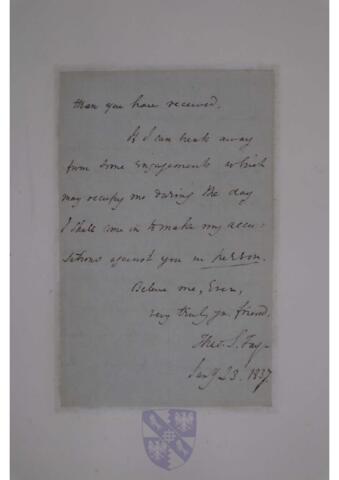 than you have received.
If I can break away
from some engagements which
may occupy me during the day
I shall come in to make my accu-
sations against you in person.
Believe me, Ever,
very truly, yr. friend.
Theo. S. Fay-
Jany 23. 1837.